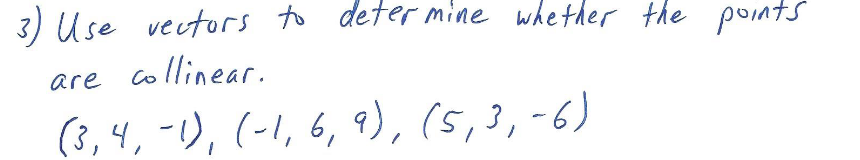 3) Use vectors to determine whether the points
are collinear.
(3, 4, -1), (-1, 6, 9), (5, 3, -6)